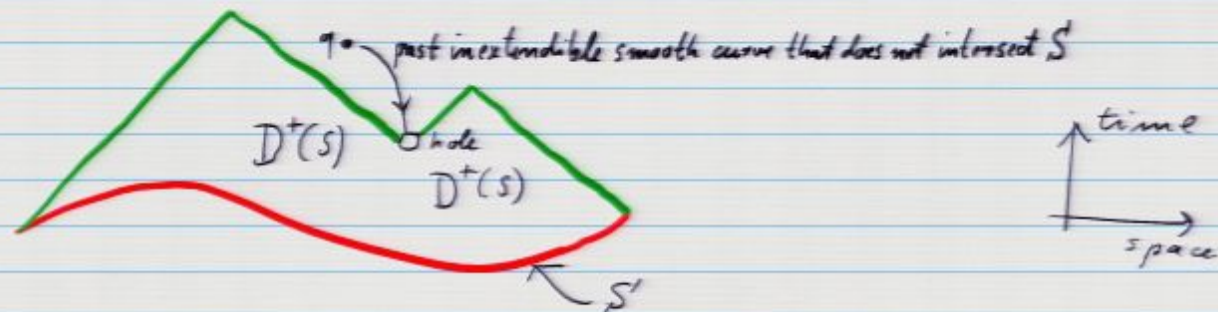 q • past inextendible smooth curve that does not intersect S
time
hole
D⁺(S)
D⁺(S)
space
S